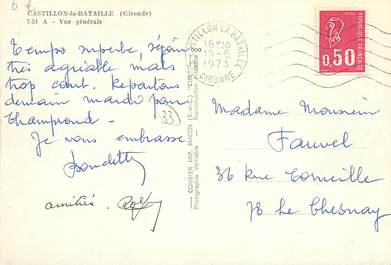 CASTILLON-la-BATAILLE (Gironde)
751 A - Vue générale
Temps superbe, séjour
très agréable mais
trop court. Repartons
demain mardi par
Champrond.
Je vous embrasse
amitiés
33
COMBIER IMP. MACON
Photographie Véritable - Reproduction
CASTILLON LA BATAILLE
18H30
1973
GIRONDE
REPUBLIQUE FRANCAISE
0,50
Madame Monsieur
Fauvel
36 rue Corneille
78 Le Chesnay